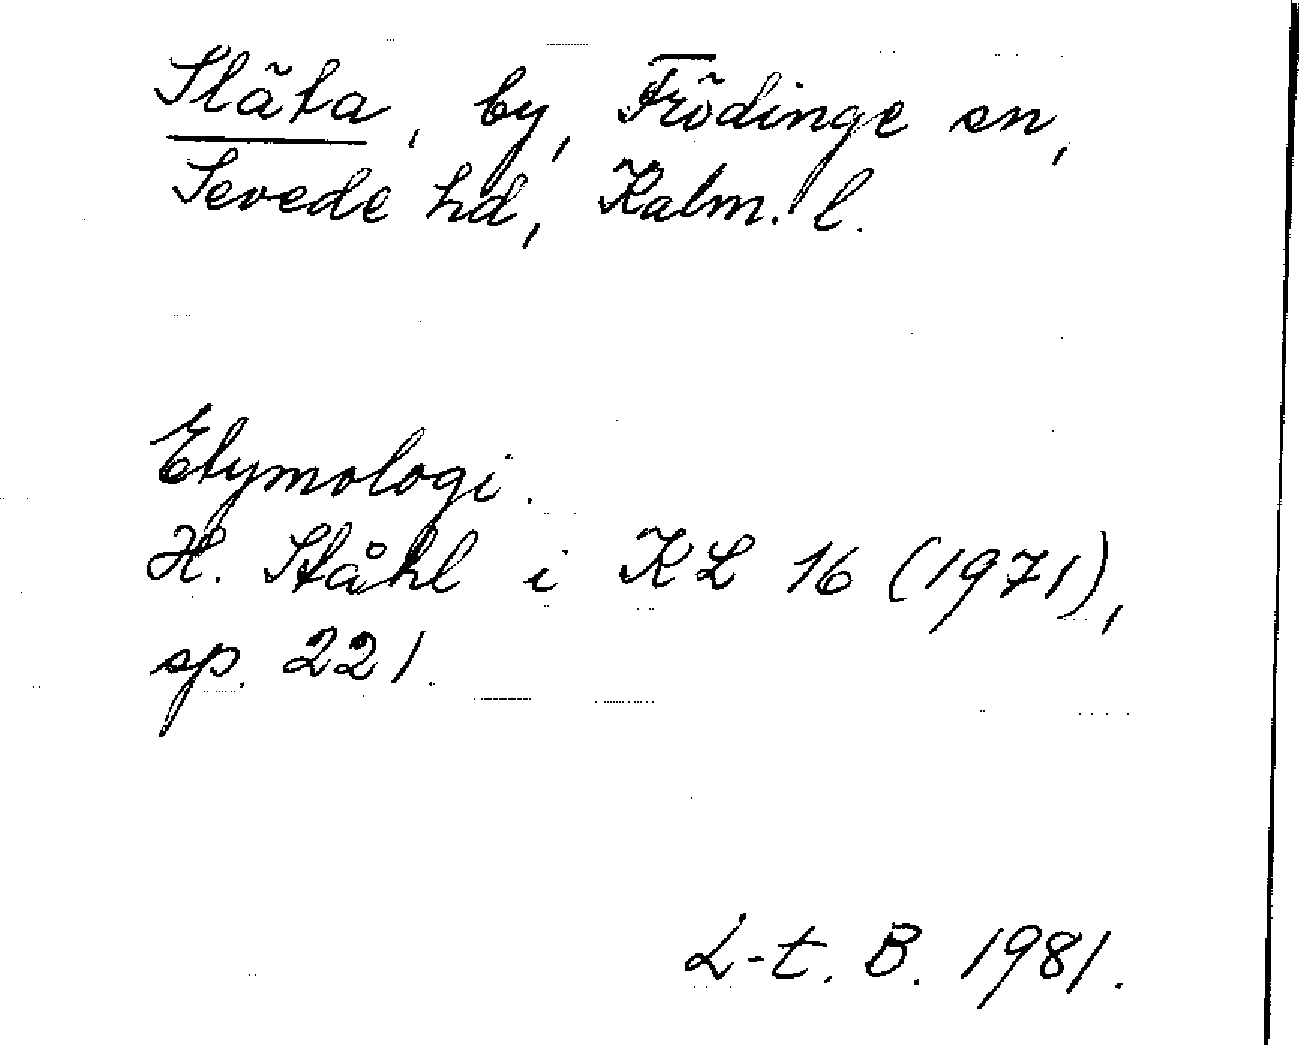 Släta, by, Frödinge sn,
Sevede hd, Kalm. l.
Etymologi.
H. Ståhl i KL 16 (1971),
sp. 221.
L-t. B. 1981.